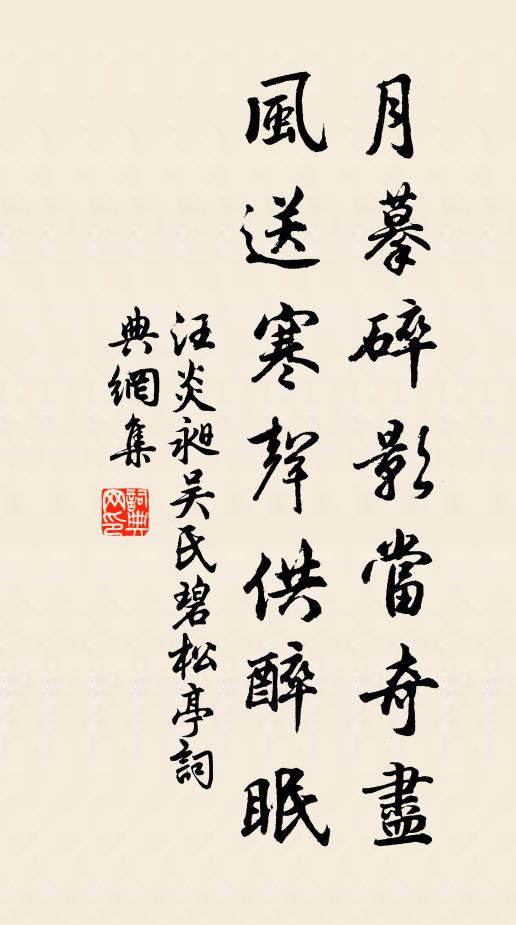 月摹碎影當奇盡
風送寒聲供醉眠
汪炎昶吴氏碧松亭詞
典網集
詞典網印